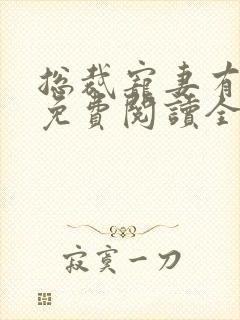 总裁寵妻有
免費閱讀全
寂寞一刀